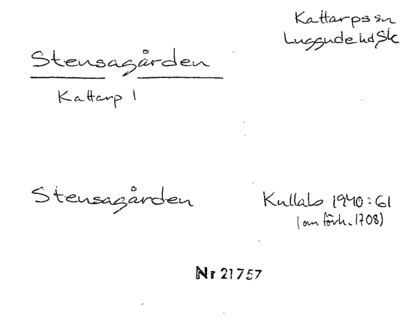 Kattarps sn
Luggude hd Sk
Stensagården
Kattarp 1
Stensagården
Kullabo 1940:61
(om förh. 1708)
Nr 21757